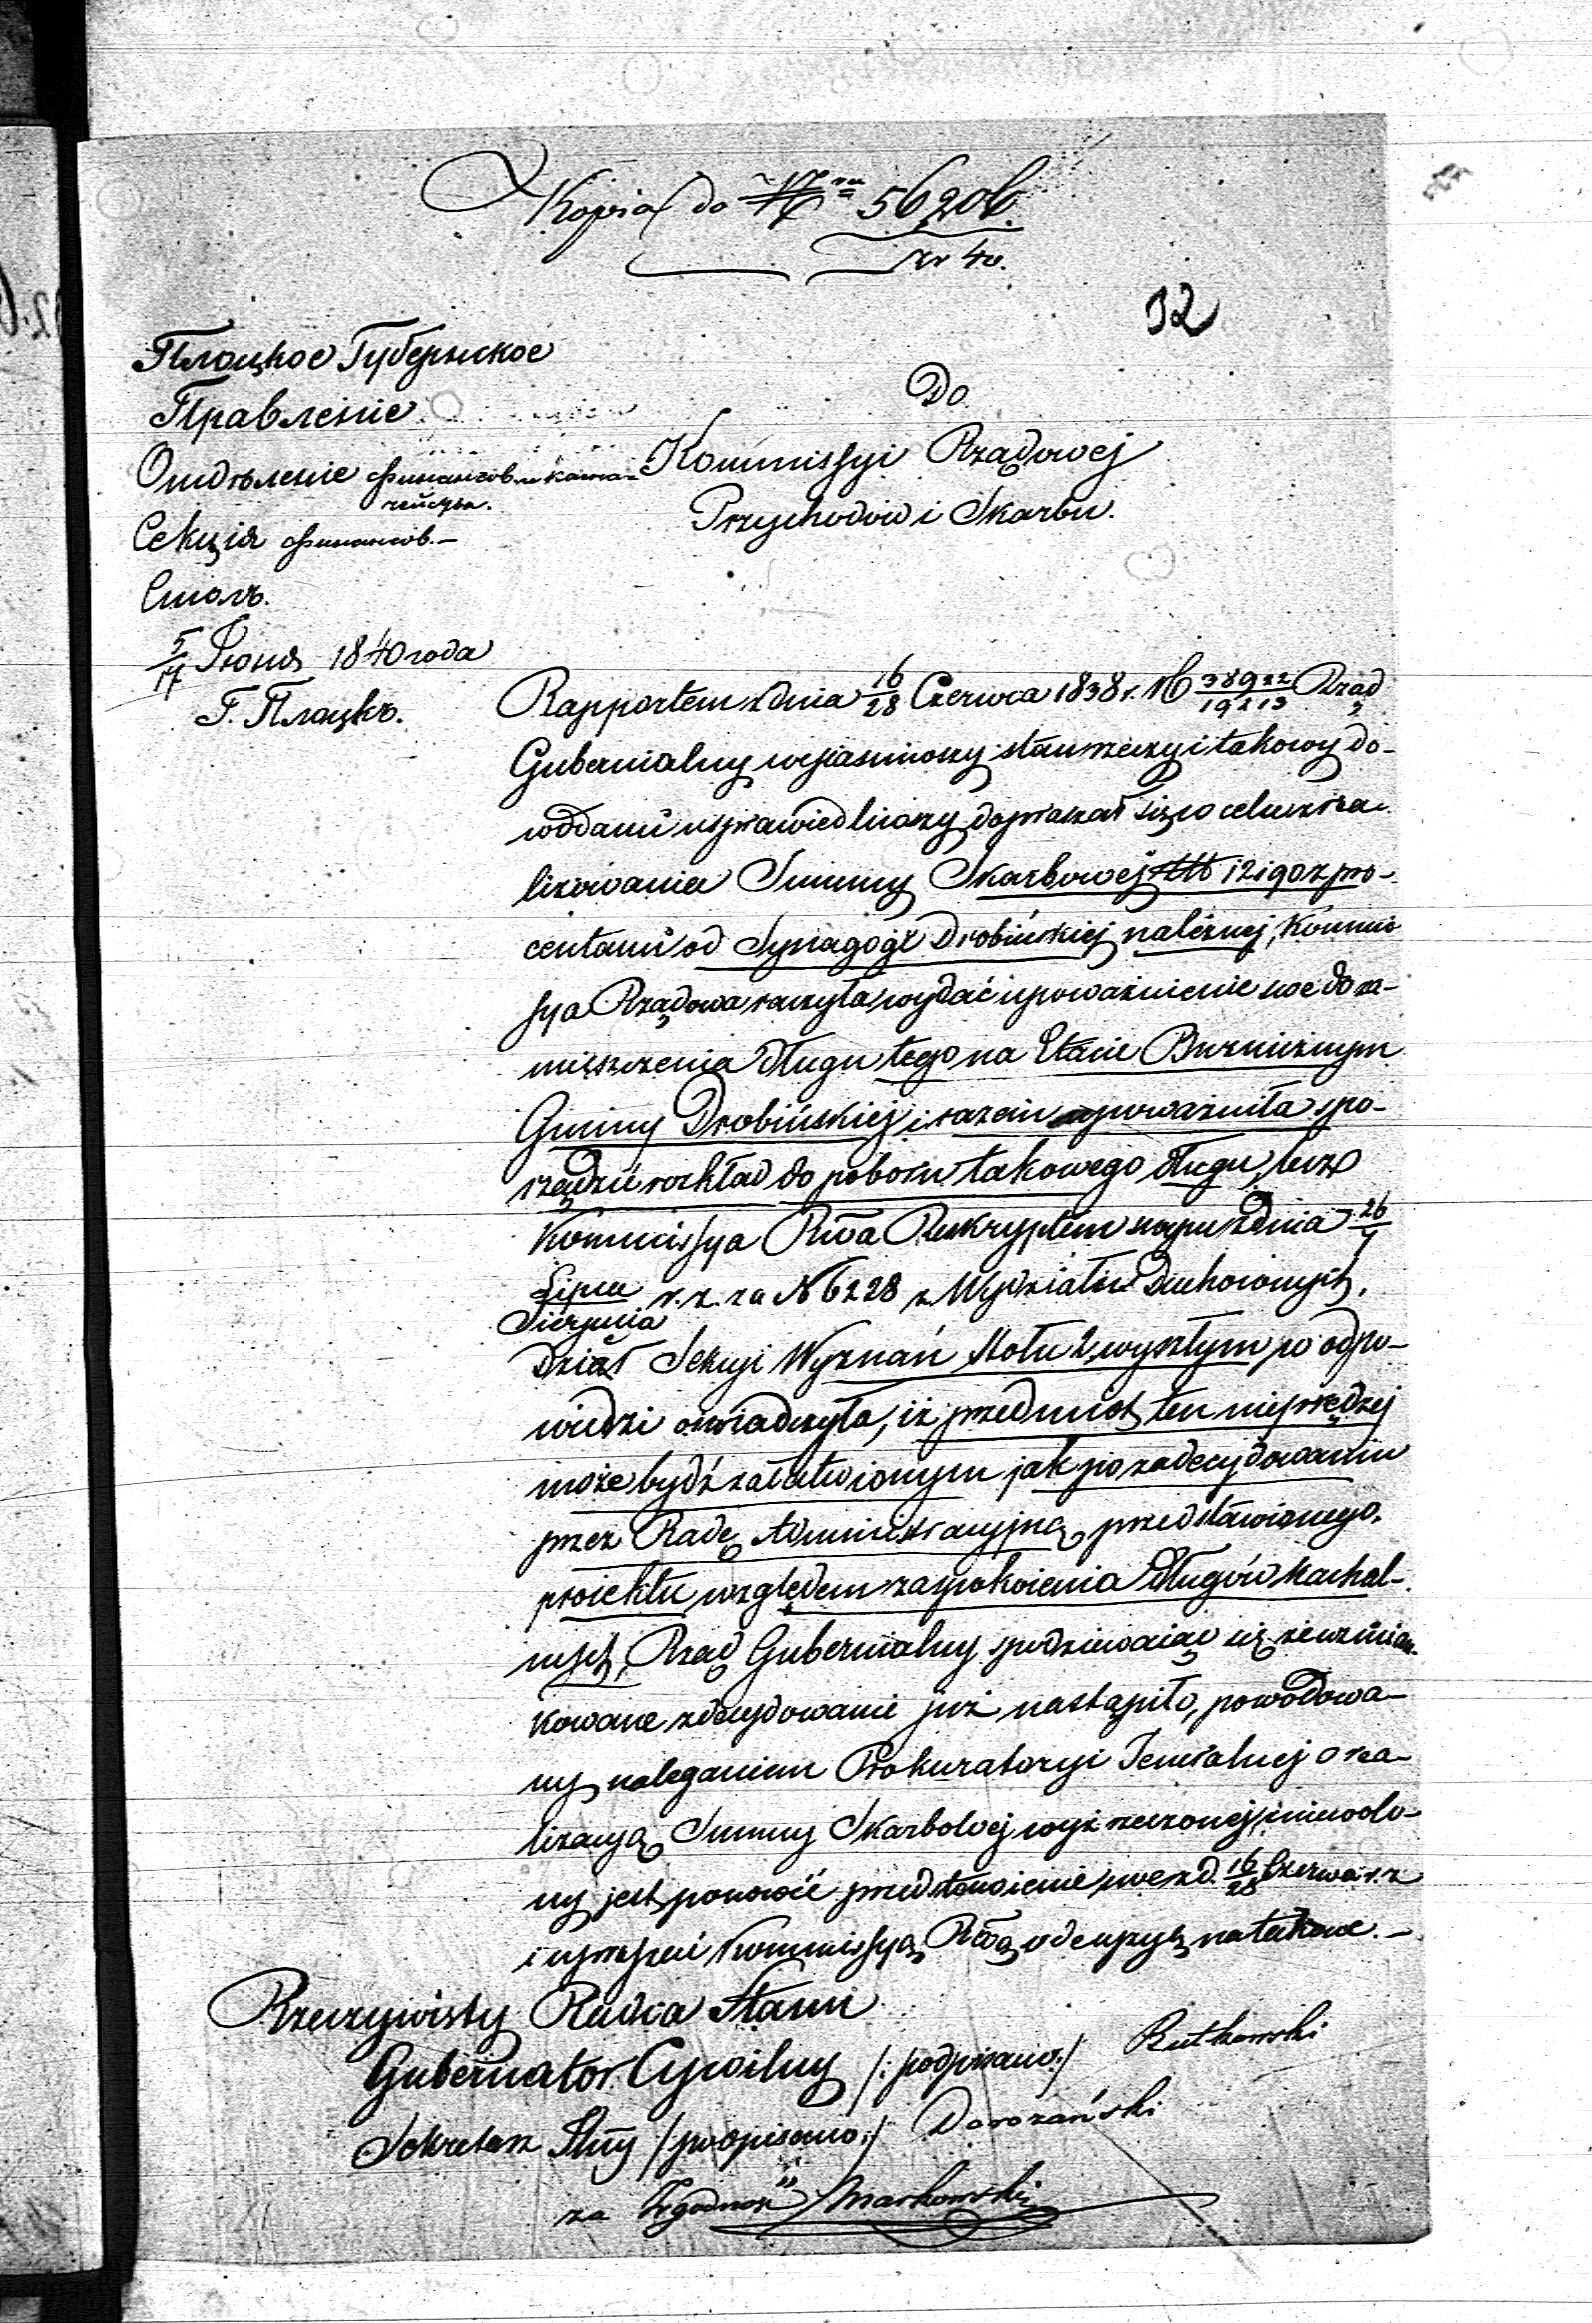 Kopia do Nru 56206
32
Плоцкое Губернское
Правленіе
Отдѣленіе финансов. и казна-
чейства.
Секція финансов.—
Столъ.
5/17 Іюня 1840 года
Г. Плоцкъ.
Do
Kommissyi Rządowej
Przychodów i Skarbu.
Rapportem z dnia 16/28 Czerwca 1838 r. N 38922/19213 Rząd
Gubernialny wyiaśniwszy stan rzeczy i takowy do-
wodami usprawiedliwszy dopraszał się w celu zrea-
lizowania Summy Skarbowej 12190 z pro-
centami od Synagogi Drobińskiej należnej, Kommis-
sya Rządowa raczyła wydać upoważnienie swe do za-
mieszczenia długu tego na Etacie Bużniczym
Gminy Drobińskiej i razem upoważniła spo-
rządzić rozkład do poboru takowego długu, lecz
Kommissya Rwa Reskryptem swym z dnia 26/7
Lipca/Sierpnia r. z. za N 6228 z Wydziału Duchownych,
Dział Sekcyi Wyznań Stołu 2. wyszłym w odpo-
wiedzi oświadczyła, iż przedmiot ten nieprędzej
może bydź załatwionym jak po zadecydowaniu
przez Radę Administracyjną przedstawionego
proiektu względem zaspokoienia długów Kachal-
nych, Rząd Gubernialny spodziewaiąc się że wzmian-
kowane zdecydowanie już nastąpiło, powodowa-
ny naleganiem Prokuratoryi Jeneralnej o rea-
lizacyą Summy Skarbowej wyż rzeczonej, zniewolo-
ny jest ponowić przedstawienie swe z d. 16/28 Czerwca r. z.
i upraszać Kommissyą Rwą o decyzyą na takowe.—
Rzeczywisty Radca Stanu
Gubernator Cywilny /: podpisano :/ Rutkowski
Sekretarz Jlny /: podpisano :/ Dorożański
za Zgodność Markowski